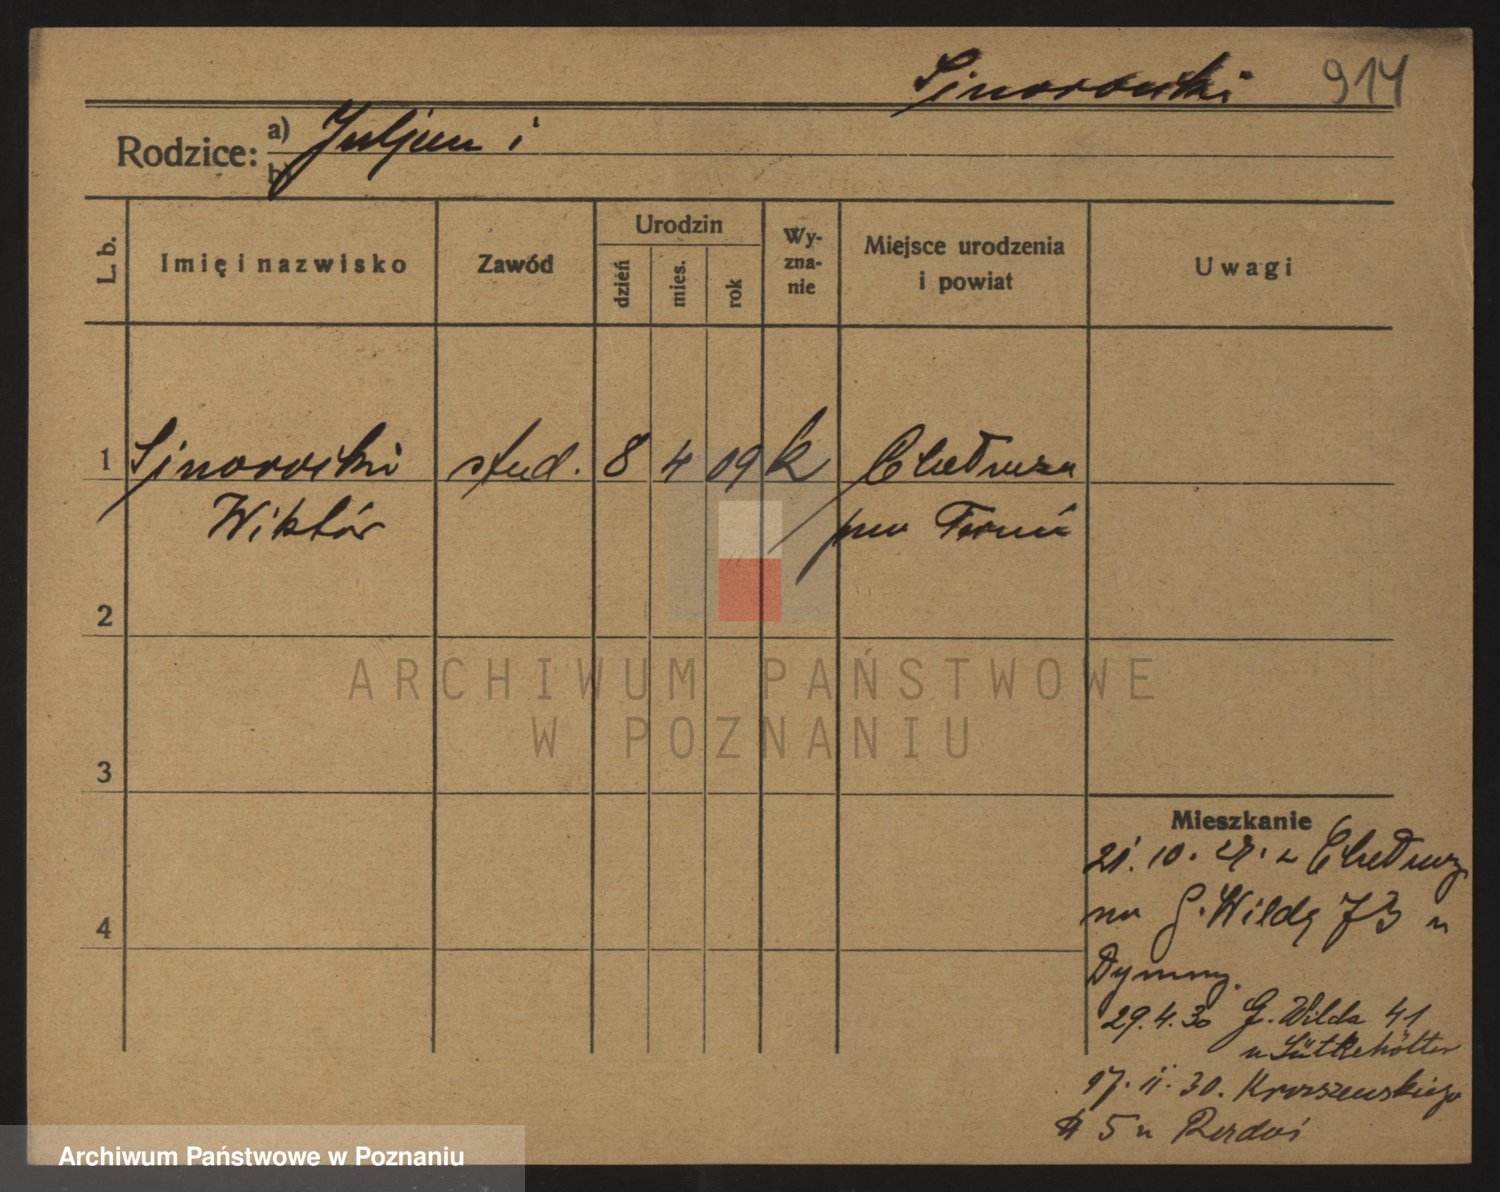 Sjnorowski 914
Rodzice: a) Juljan i
b)
L. b. Imię i nazwisko Zawód Urodzin dzień mies. rok Wy-zna-nie Miejsce urodzenia i powiat Uwagi
1 Sjnorowski stud. 8 4 09 k Chełmża
Wiktór pow Toruń
2
3
4
Mieszkanie
21. 10. 27. z Chełmży
na G. Wildę 73 u
Dymny.
29.4.30 G. Wilda 41
u Lütkehölter
17. 11. 30. Kraszewskiego
5 u
ARCHIWUM PAŃSTWOWE
W POZNANIU
Archiwum Państwowe w Poznaniu